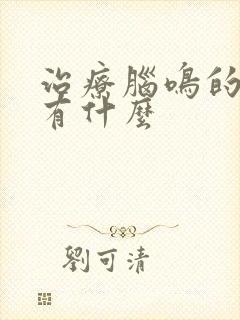 治療腦鳴的
有什麼
劉可清